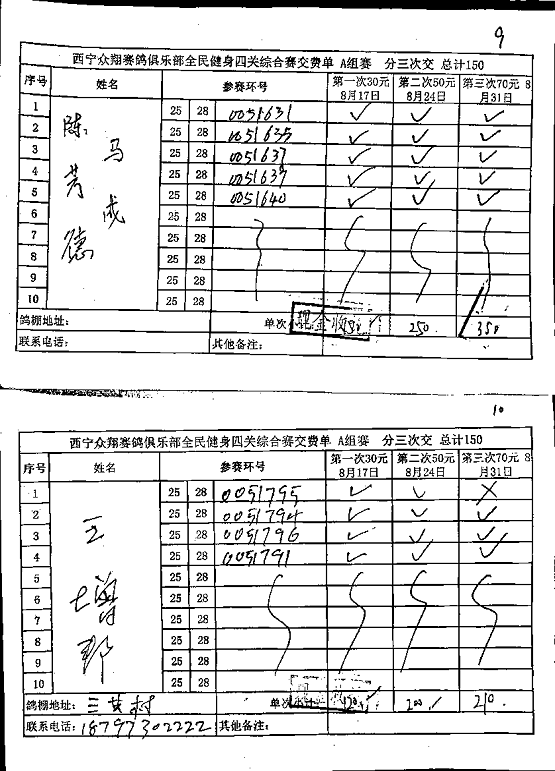 9
西宁众翔赛鸽俱乐部全民健身四关综合赛交费单 A组赛 分三次交 总计150
序号 姓名 参赛环号 第一次30元 8月17日 第二次50元 8月24日 第三次70元 8月31日
1 25 28 0051631 ✓ ✓ ✓
2 25 28 0051635 ✓ ✓ ✓
3 25 28 0051637 ✓ ✓ ✓
4 25 28 0051639 ✓ ✓ ✓
5 25 28 0051640 ✓ ✓ ✓
6 25 28
7 25 28
8 25 28
9 25 28
10 25 28
陈 马
成
德
鸽棚地址: 单次 现金收 250 350
联系电话: 其他备注:
10
西宁众翔赛鸽俱乐部全民健身四关综合赛交费单 A组赛 分三次交 总计150
序号 姓名 参赛环号 第一次30元 8月17日 第二次50元 8月24日 第三次70元 8月31日
1 25 28 0051795 ✓ ✓ ✗
2 25 28 0051794 ✓ ✓ ✓
3 25 28 0051796 ✓ ✓ ✓
4 25 28 0051791 ✓ ✓ ✓
5 25 28
6 25 28
7 25 28
8 25 28
9 25 28
10 25 28
王
增
鸽棚地址: 三其村 单次 120 200 210
联系电话: 18797302222 其他备注: